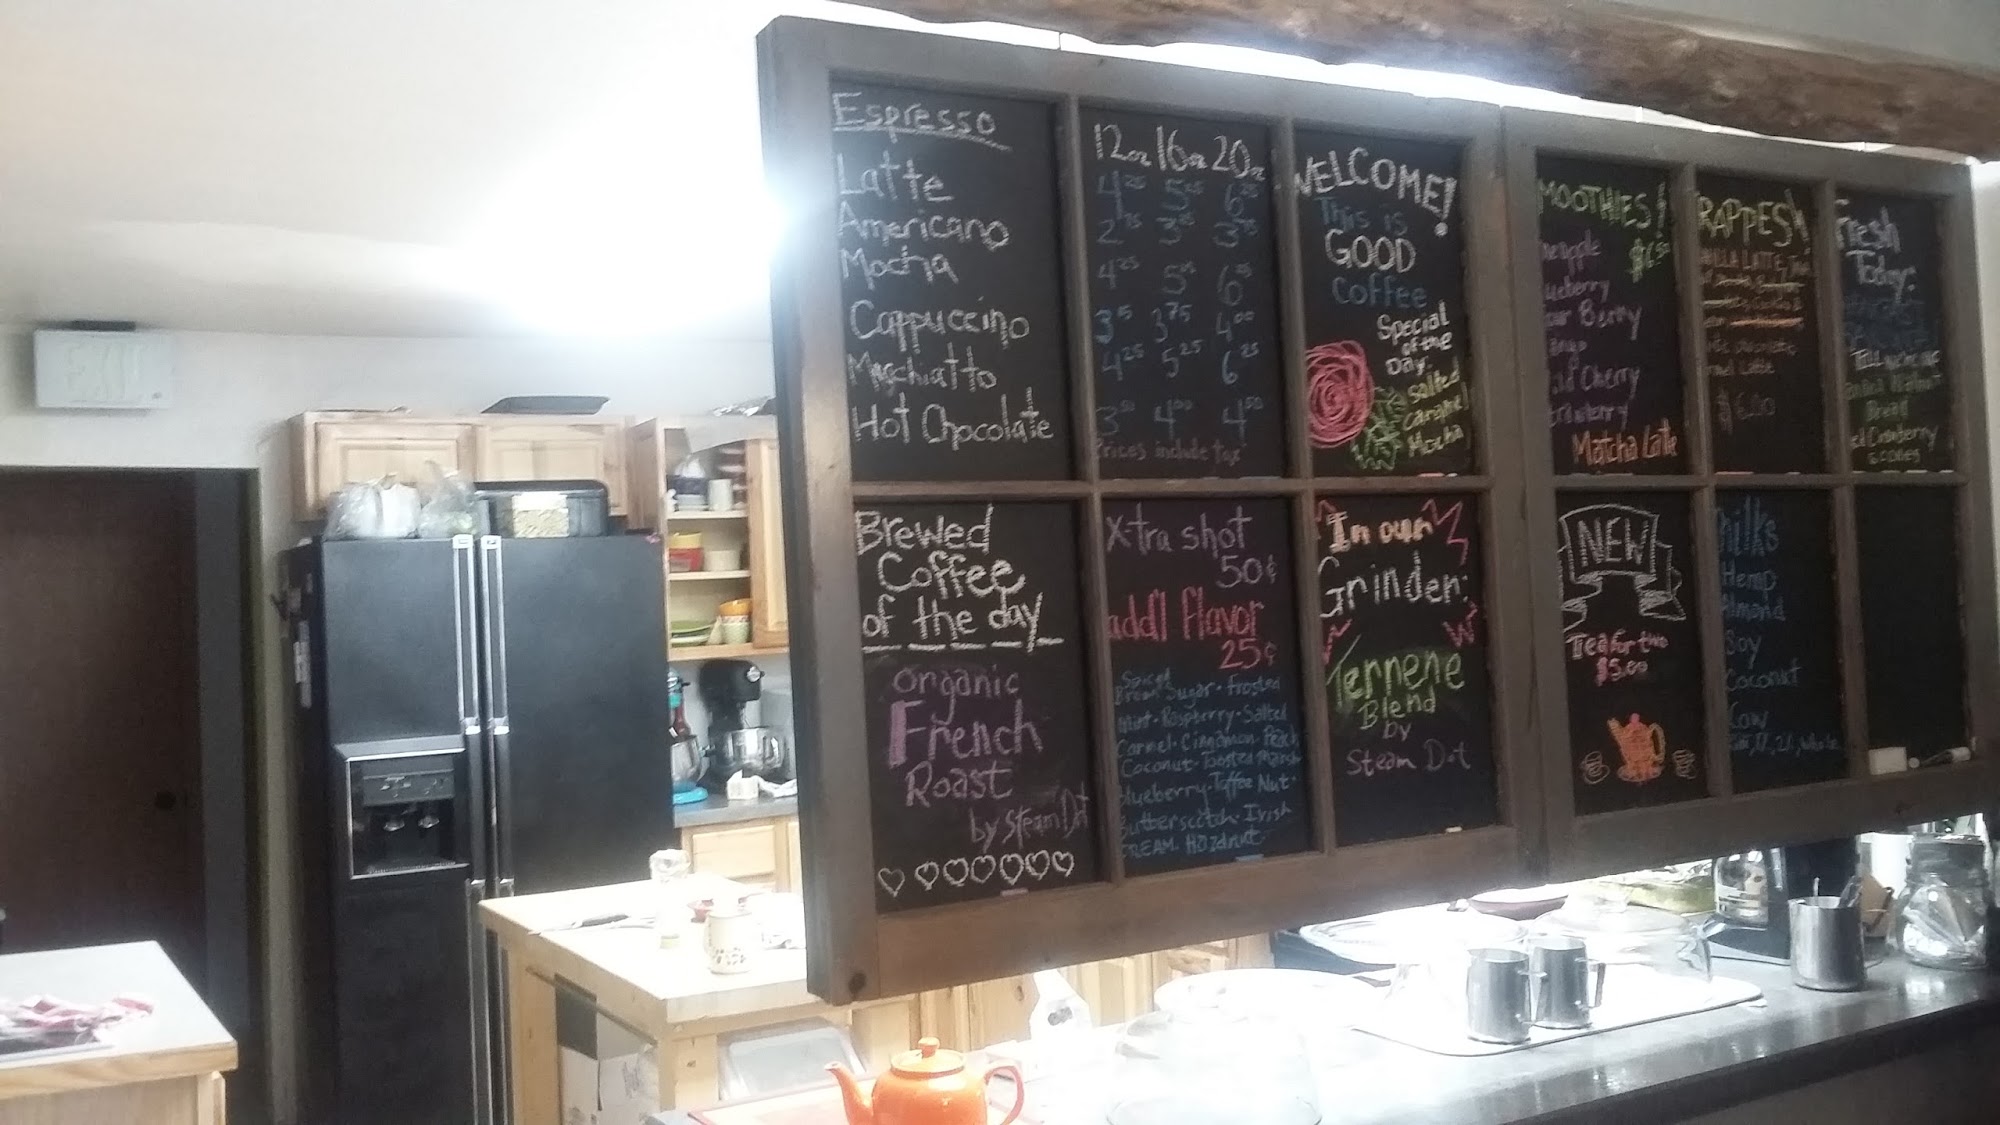 EXIT
Espresso
Latte
Americano
Mocha
Cappuccino
Macchiatto
Hot Chocolate
12oz 16oz 20oz
4 25 5 25 6 25
2 75 3 25 3 75
4 25 5 25 6 25
3 75 4 00
4 25 5 25 6 25
3 50 4 00 4 50
Prices include tax
WELCOME!
This is
GOOD
Coffee
Special
of the
Day:
Salted
Caramel
Mocha
SMOOTHIES!
$6.50
Pineapple
Blueberry
Berry
Mango
Wild Cherry
Strawberry
Matcha Latte
FRAPPES!
VANILLA LATTE
Latte
$6.00
Fresh
Today:
Walnut
Bread
Cranberry
Scones
Brewed
Coffee
of the day
organic
French
Roast
by Steam Dot
X-tra shot
50¢
add'l flavor
25¢
Spiced
Brown Sugar · Frosted
Mint · Raspberry · Salted
Carmel · Cinnamon · Peach
Coconut · Toasted Marsh
Blueberry · Toffee Nut ·
Butterscotch · Irish
CREAM · Hazelnut
In our
Grinder:
Ternene
Blend
by
Steam Dot
NEW
Tea for two
$5.00
Milks
Hemp
Almond
Soy
Coconut
Cow